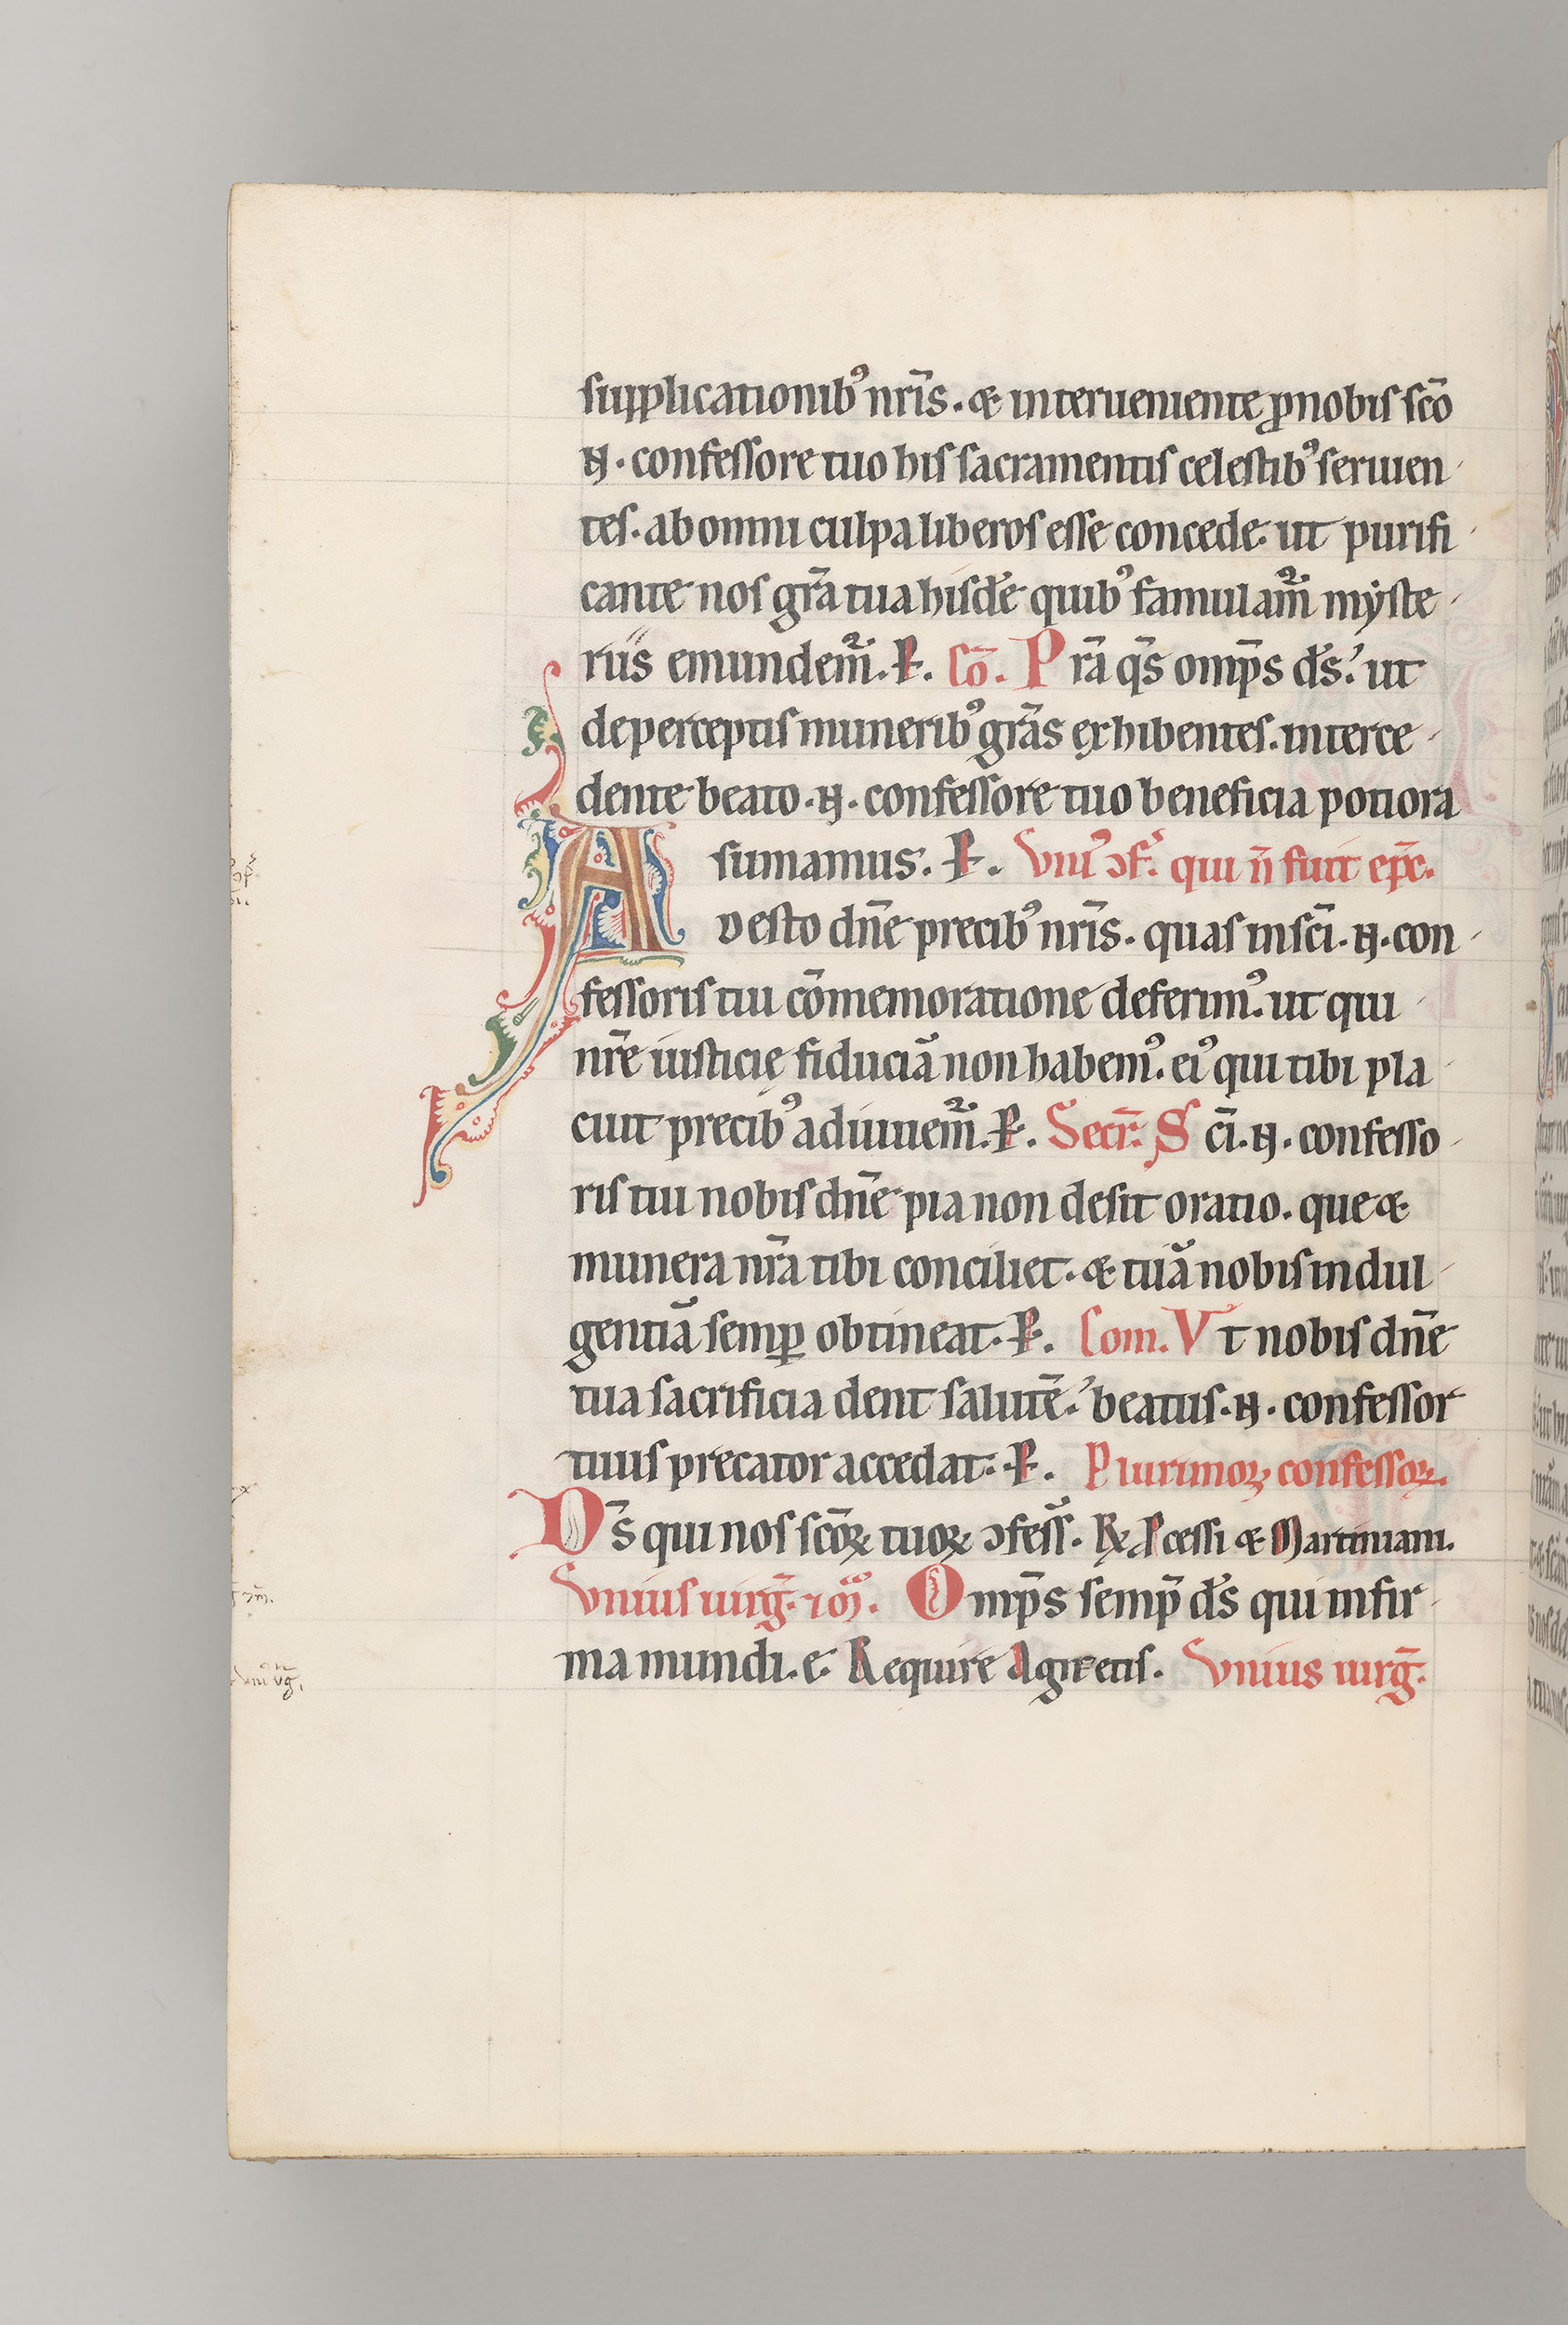 supplicationibꝰ nr̄is. & interueniente ꝓ nobis sc̄o
.N. confessore tuo his sacramentis celestibꝰ seruien
tes. ab omni culpa liberos esse concede. ut purifi
cante nos gr̄a tua hisdē quibꝰ famulam̄ myste
riis emundem̄. P. Cō. Prā q̄s omp̄s d̄s. ut
de perceptis muneribꝰ gr̄as exhibentes. interce
dente beato .N. confessore tuo beneficia potiora
sumamus. P. Vniꝰ ɔf. qui n̄ fuit ep̄c.
Adesto dn̄e precibꝰ nr̄is. quas in sc̄i .N. con
fessoris tui cōmemoratione deferimꝰ. ut qui
nr̄e iusticię fiduciā non habemꝰ. eiꝰ qui tibi pla
cuit precibꝰ adiuuem̄. P. Secr̄. Sc̄i .N. confesso
ris tui nobis dn̄e pia non desit oratio. que &
munera nr̄a tibi conciliet. & tuā nobis indul
gentiā semꝑ obtineat. P. Com. Vt nobis dn̄e
tua sacrificia dent salutē. beatus .N. confessor
tuus precator accedat. P. Plurimoꝝ confessoꝝ.
Ds̄ qui nos sc̄oꝝ tuoꝝ ɔfess̄. Rꝗ Pcessi & Martiniani.
Vnius uirḡ. & m̄. Omp̄s semp̄ d̄s qui infir
ma mundi. e. Require Agnetis. Vnius uirḡ.